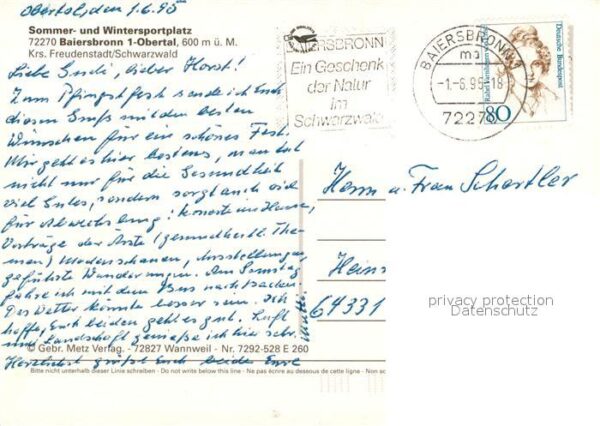 Obertal, den 1.6.95
Sommer- und Wintersportplatz
72270 Baiersbronn 1-Obertal, 600 m ü. M.
Krs. Freudenstadt/Schwarzwald
Liebe Susi, lieber Horst!
Zum Pfingstfest sende ich Euch
diesen Gruß mit den besten
Wünschen für ein schönes Fest.
Mir geht es hier bestens, man tut
nicht nur für die Gesundheit
viel Gutes, sondern sorgt auch viel
für Abwechslung: Konzerte im Hause,
Vorträge der Ärzte (gesundheitl. The-
men) Modenschauen, Ausstellungen,
geführte Wanderungen. Am Samstag
fahre ich mit dem Bus nach
Das Wetter könnte besser sein. Ich
hoffe, Euch beiden geht es gut. Luft
und Landschaft genieße ich hier sehr.
Herzlichst grüßt Euch beide Eure
Mutti
© Gebr. Metz Verlag - 72827 Wannweil - Nr. 7292-528 E 260
Bitte nicht unterhalb dieser Linie schreiben - Do not write below this line - Ne pas écrire au dessous de cette ligne - Non sc
ERSBRONN
Ein Geschenk
der Natur
im
Schwarzwald
BAIERSBRONN 1
ma
-1.-6.95-18
72270
Deutsche Bundespost
Rahel Varnhagen von Ense
80
Herrn u. Frau Schertler
Heins
64331
privacy protection
Datenschutz